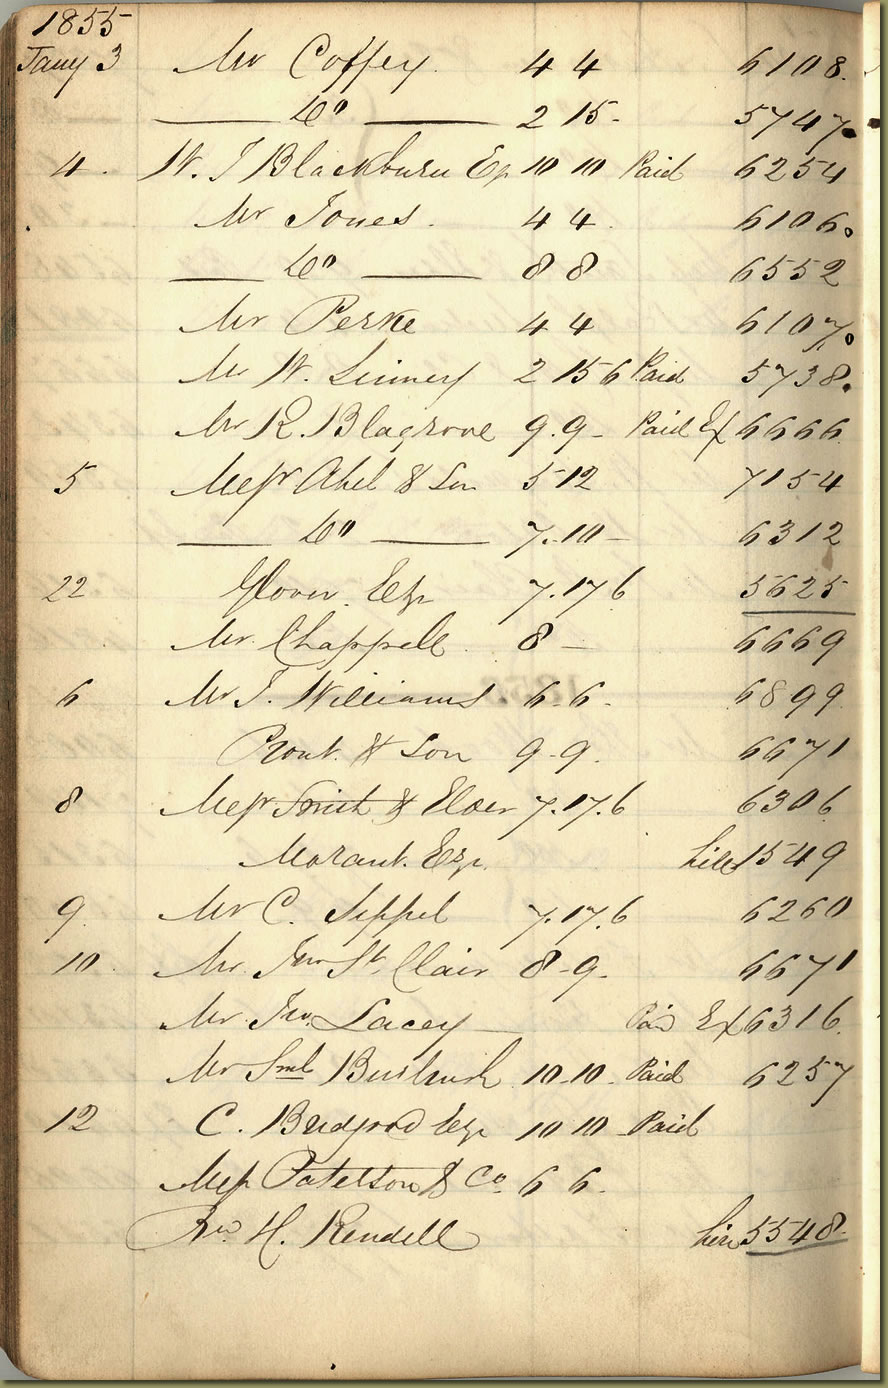 1855
Jany 3 Mr Coffey 4 4 6108.
— Do — 2 15 - 5747.
4. W. J Blackburn Eq 10 10 Paid 6254
Mr Jones. 4 4. 6106.
— Do — 8 8 6552
Mr Perke 4 4 6107.
Mr W. 2 15 6 Paid 5738.
Mr R. Blagrove 9. 9 - Paid Ex 6666
5 Messr Abel & Son 5 12 7154
— Do — 7. 10 - 6312
22 Glover Esq 7. 17 6 5625
Mr. Chappell 8 - 6669
6 Mr J. Williams 6 6. 6899
Prout & Son 9 - 9. 6671
8 Messr Smith & Elder 7. 17. 6 6306
Morant. Esq. hire 1549
9. Mr C. 7. 17. 6 6260
10. Mr. Jno St. Clair 8 - 9. 6671
Mr. Jno. Lacey — Paid Ex 6316.
Mr Saml 10. 10. Paid 6257
12 C. Esqr 10 10 Paid
Mess Paterson & Co. 6 6.
Rev H. Rendell hire 5548.